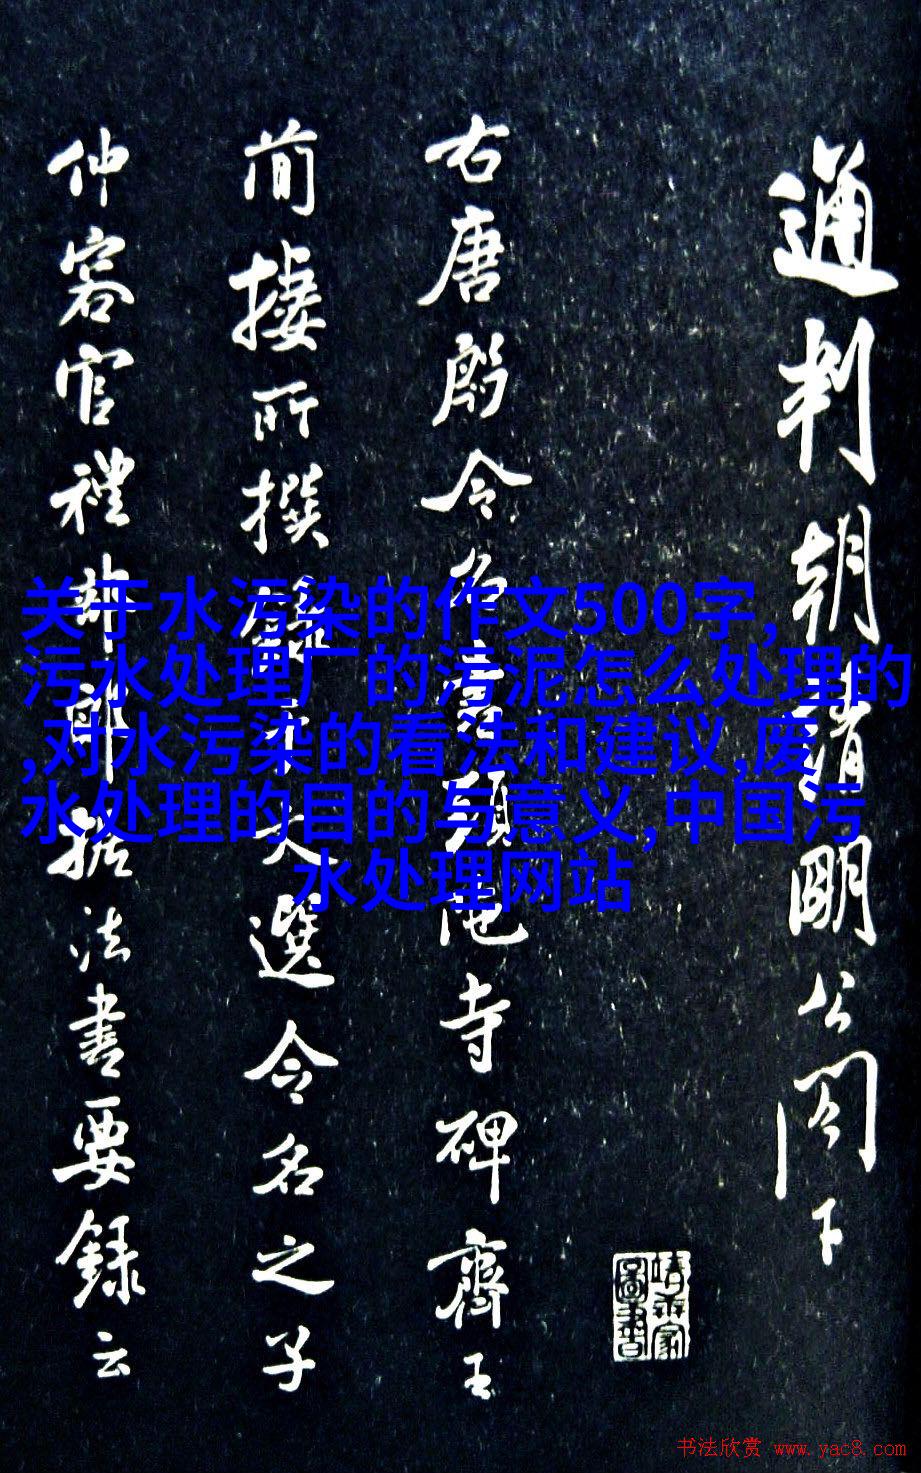 通判朝請明公閤下
右唐殷令名書頭陁寺碑齊王
簡棲所撰錄于文選令名之子
仲容官禮部郎据法書要錄云
关于水污染的作文500字,
污水处理厂的污泥怎么处理的
,对水污染的看法和建议,废
水处理的目的与意义,中国污
水处理网站
书法欣赏 www.yac8.com